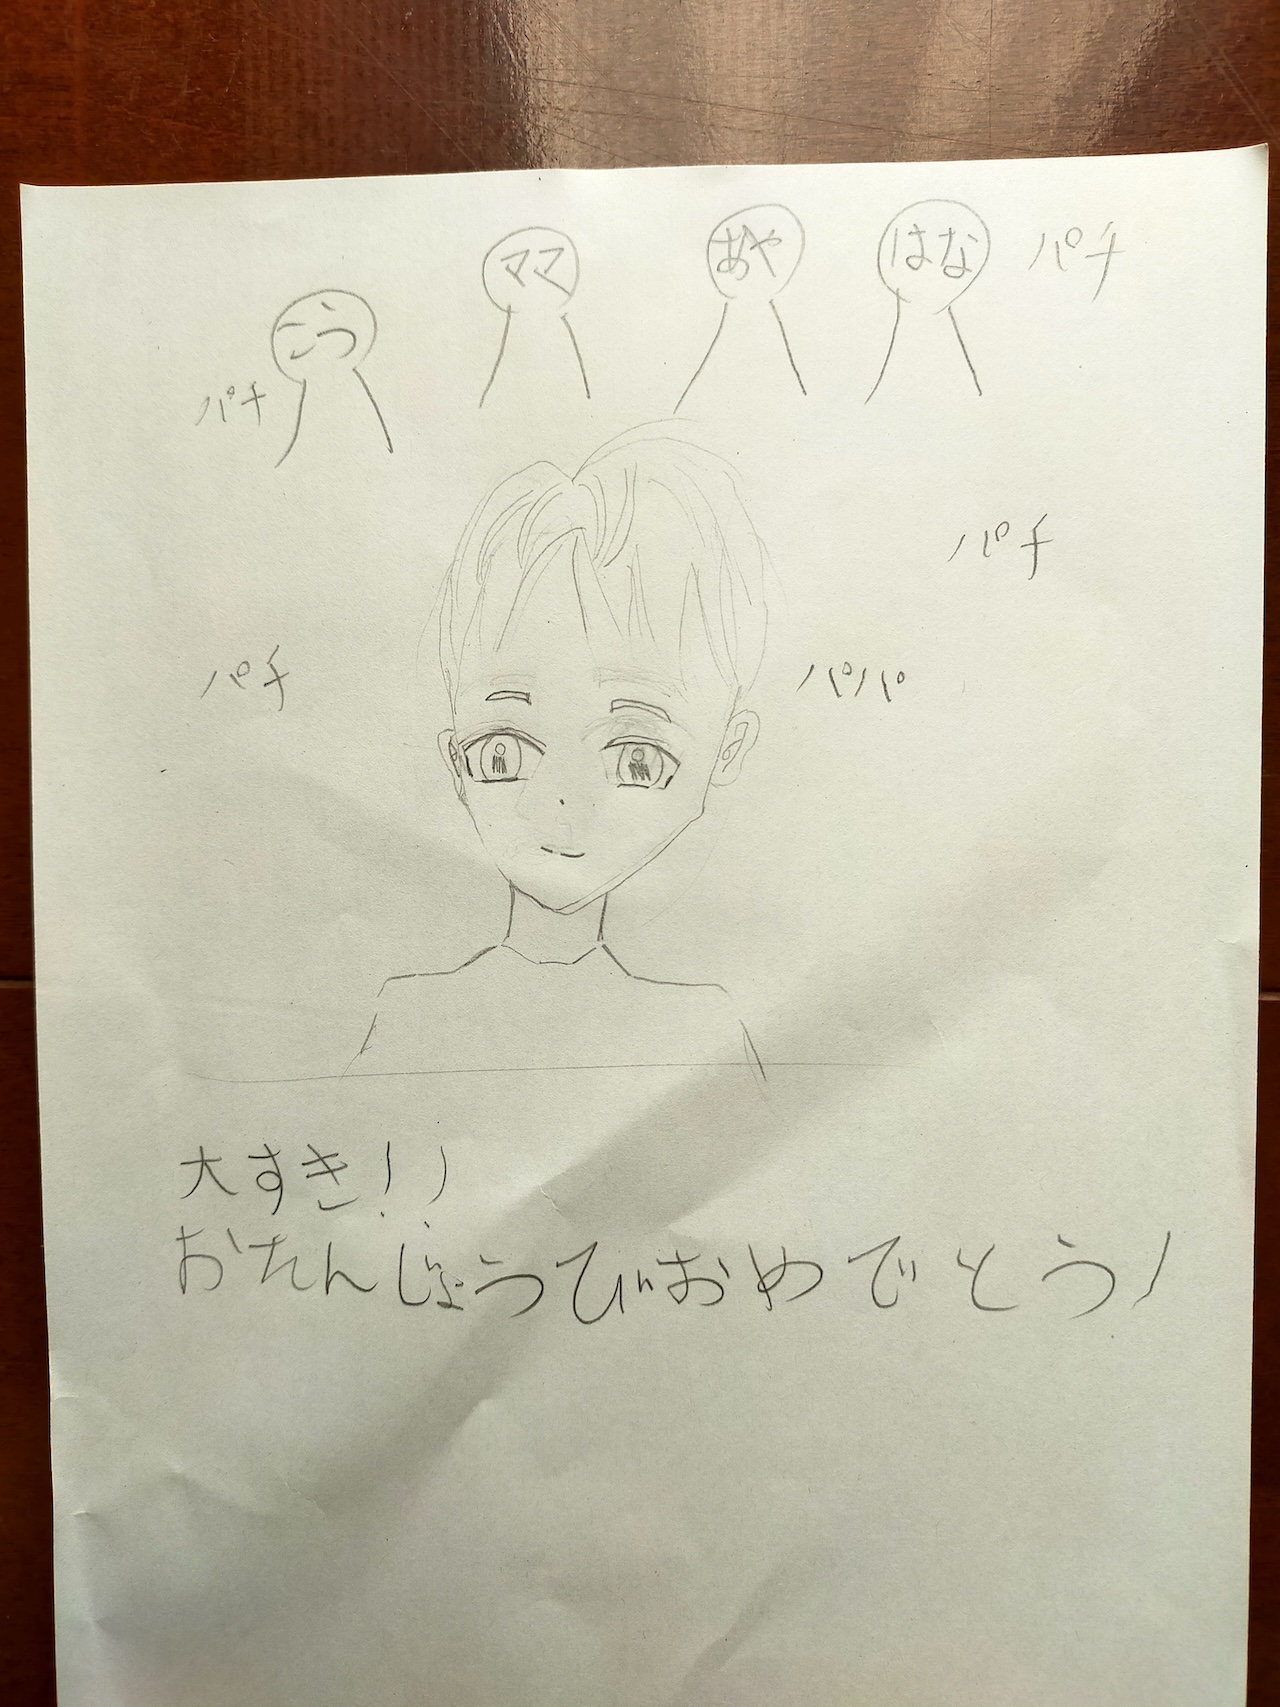 ママ
あや
はな
パチ
こう
パチ
パチ
パチ
パパ
大すき!!
おたんじょうびおめでとう!